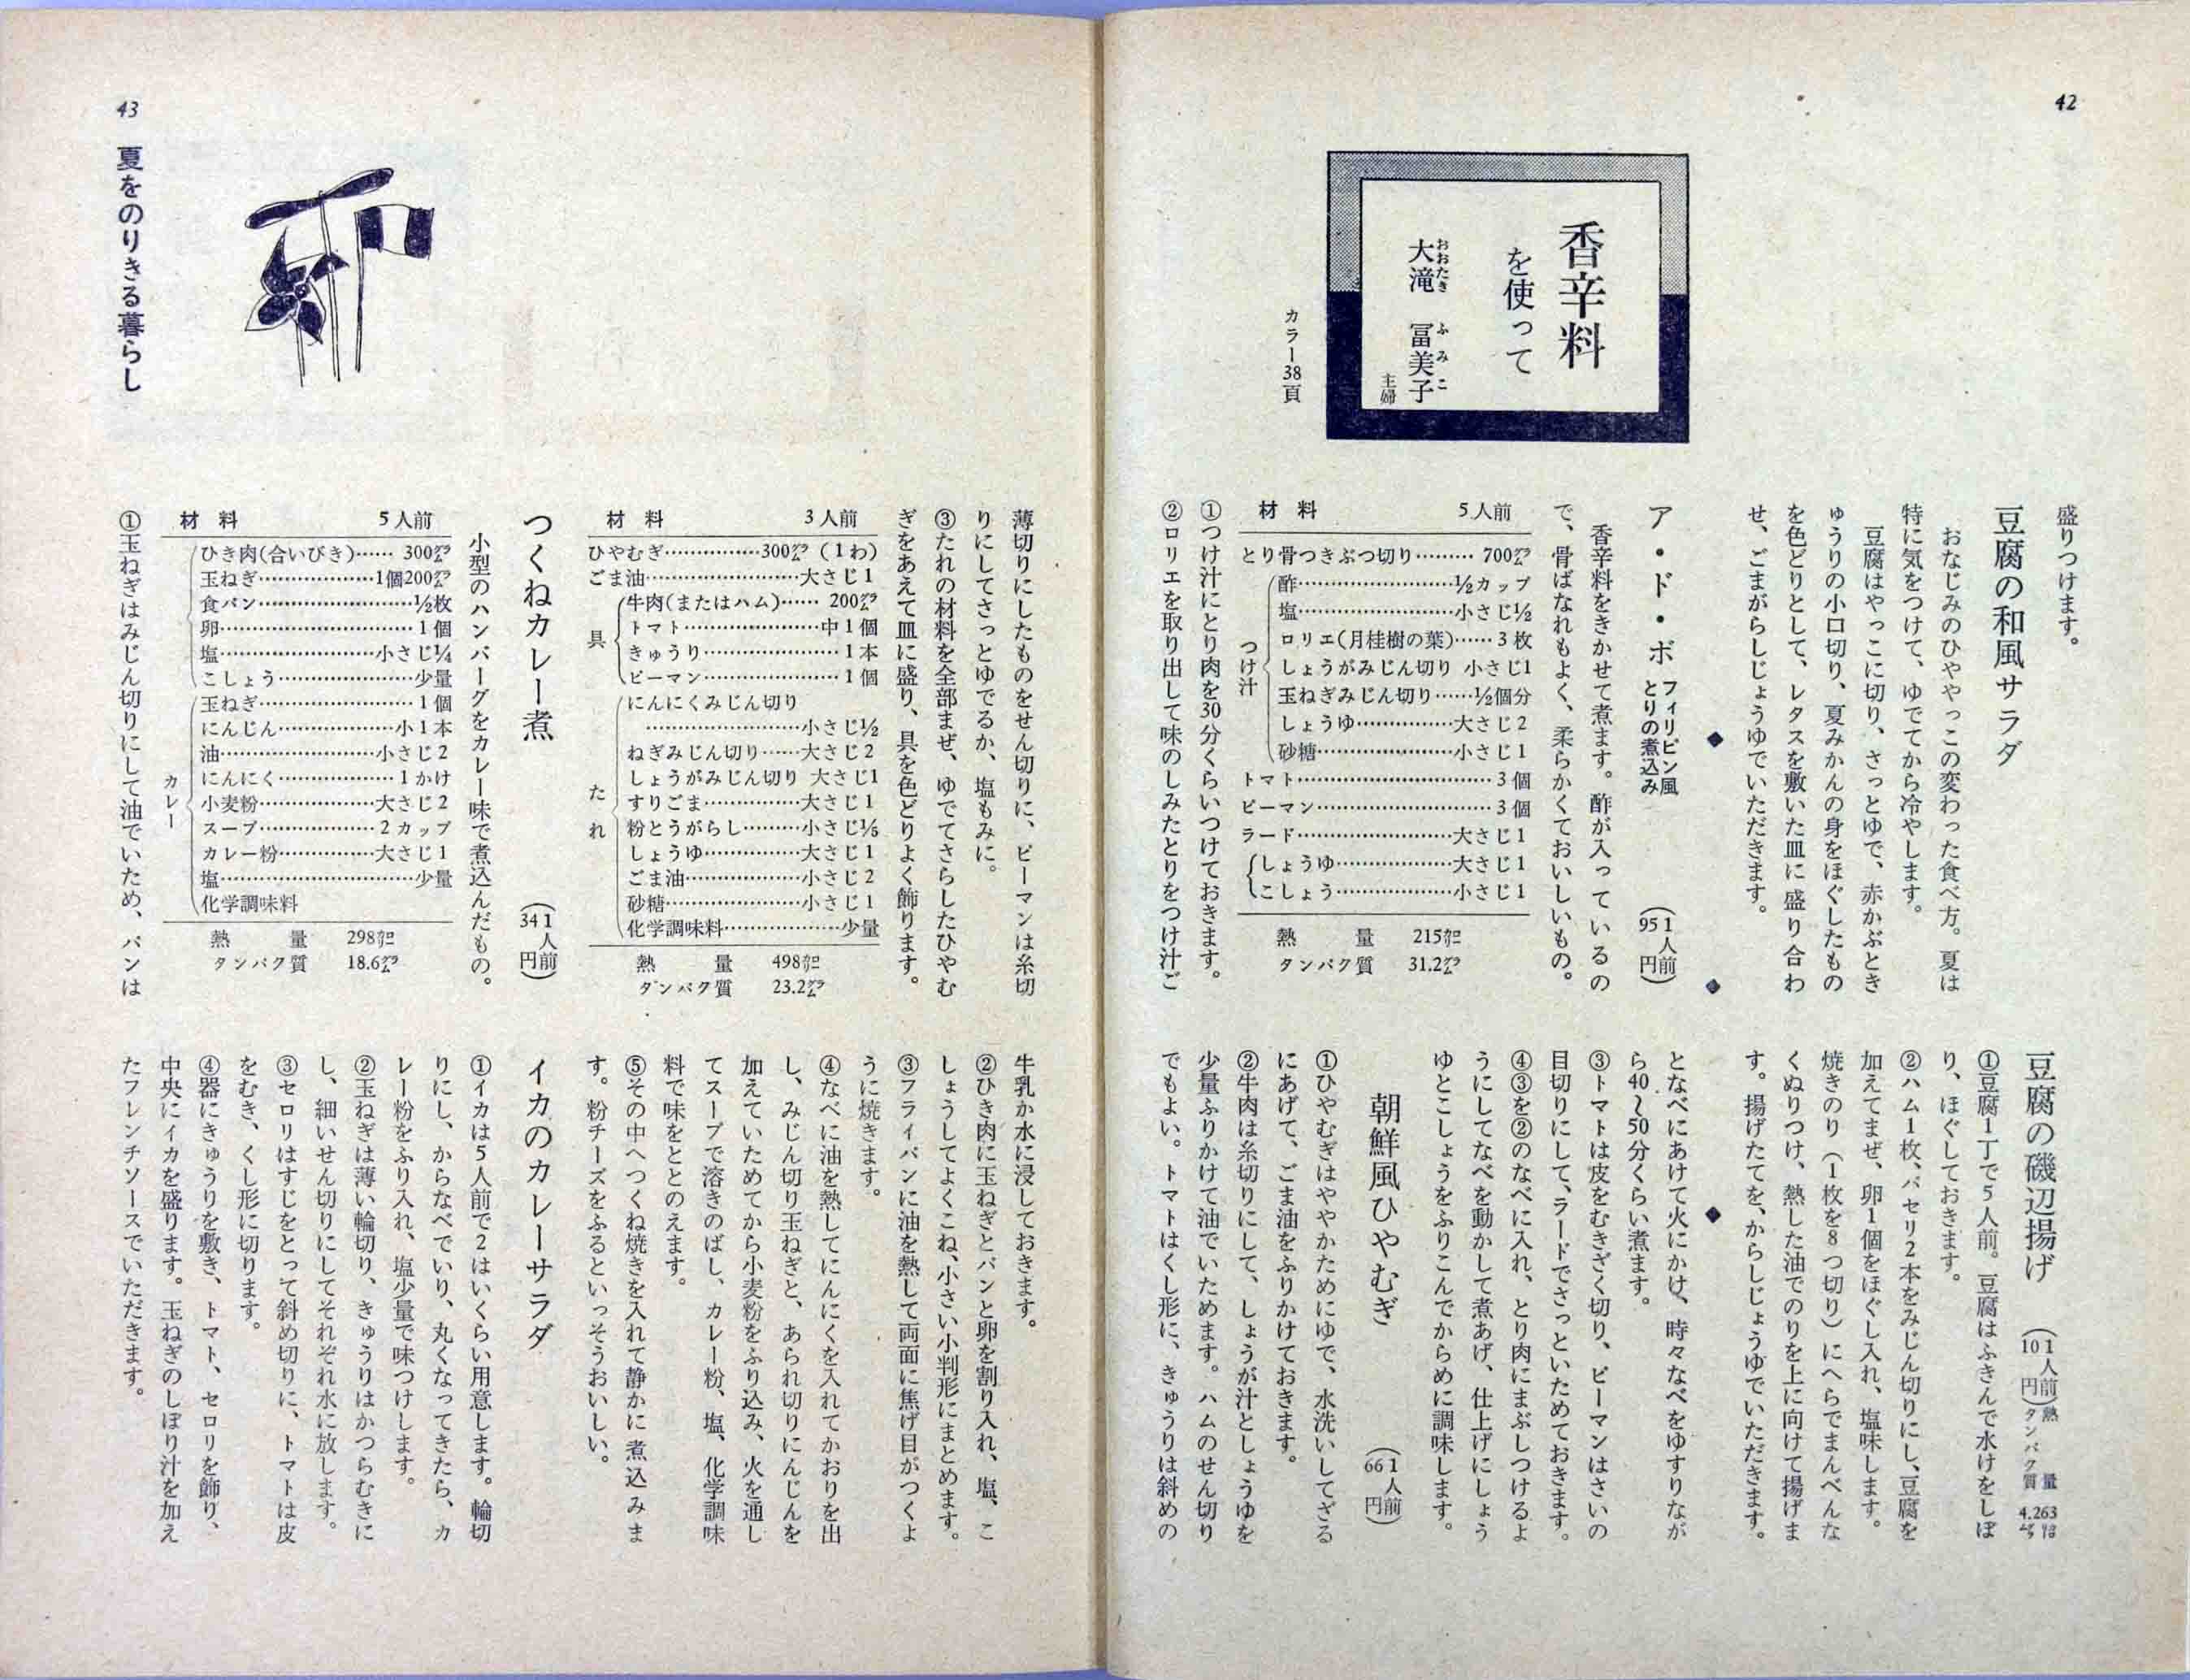 42
盛りつけます。
豆腐の和風サラダ
おなじみのひややっこの変わった食べ方。夏は
特に気をつけて、ゆでてから冷やします。
豆腐はやっこに切り、さっとゆで、赤かぶとき
ゅうりの小口切り、夏みかんの身をほぐしたもの
を色どりとして、レタスを敷いた皿に盛り合わ
せ、ごまがらしじょうゆでいただきます。
豆腐の磯辺揚げ
(1人前
10円)
熱量 63カロリー
タンパク質 4.2グラム
①豆腐1丁で5人前。豆腐はふきんで水けをしぼ
り、ほぐしておきます。
②ハム1枚、パセリ2本をみじん切りにし、豆腐を
加えてまぜ、卵1個をほぐし入れ、塩味します。
焼きのり(1枚を8つ切り)にへらでまんべんな
くぬりつけ、熱した油でのりを上に向けて揚げま
す。揚げたてを、からしじょうゆでいただきます。
◆
◆
◆
香辛料
を使って
おおたき ふみこ
大滝 冨美子
主婦
カラー38頁
ア・ド・ボ
フィリピン風
とりの煮込み
(1人前
95円)
香辛料をきかせて煮ます。酢が入っているの
で、骨ばなれもよく、柔らかくておいしいもの。
材料 5人前
とり骨つきぶつ切り……… 700グラム
つけ汁
酢…………………½カップ
塩…………………小さじ½
ロリエ(月桂樹の葉)……3枚
しょうがみじん切り 小さじ1
玉ねぎみじん切り……½個分
しょうゆ……………大さじ2
砂糖…………………小さじ1
トマト…………………3個
ピーマン…………………3個
ラード…………………大さじ1
しょうゆ………………大さじ1
こしょう………………小さじ1
熱量 215カロリー
タンパク質 31.2グラム
①つけ汁にとり肉を30分くらいつけておきます。
②ロリエを取り出して味のしみたとりをつけ汁ご
となべにあけて火にかけ、時々なべをゆすりなが
ら40〜50分くらい煮ます。
③トマトは皮をむきざく切り、ピーマンはさいの
目切りにして、ラードでさっといためておきます。
④③を②のなべに入れ、とり肉にまぶしつけるよ
うにしてなべを動かして煮あげ、仕上げにしょう
ゆとこしょうをふりこんでからめに調味します。
朝鮮風ひやむぎ
(1人前
66円)
①ひやむぎはややかためにゆで、水洗いしてざる
にあげて、ごま油をふりかけておきます。
②牛肉は糸切りにして、しょうが汁としょうゆを
少量ふりかけて油でいためます。ハムのせん切り
でもよい。トマトはくし形に、きゅうりは斜めの
薄切りにしたものをせん切りに、ピーマンは糸切
りにしてさっとゆでるか、塩もみに。
③たれの材料を全部まぜ、ゆでてさらしたひやむ
ぎをあえて皿に盛り、具を色どりよく飾ります。
材料 3人前
ひやむぎ……………300グラム(1わ)
ごま油…………………大さじ1
具
牛肉(またはハム)…… 200グラム
トマト…………………中1個
きゅうり…………………1本
ピーマン…………………1個
たれ
にんにくみじん切り
…………………小さじ½
ねぎみじん切り……大さじ2
しょうがみじん切り 大さじ1
すりごま……………大さじ1
粉とうがらし………小さじ⅓
しょうゆ……………大さじ1
ごま油………………小さじ2
砂糖…………………小さじ1
化学調味料………………少量
熱量 498カロリー
タンパク質 23.2グラム
つくねカレー煮
(1人前
34円)
小型のハンバーグをカレー味で煮込んだもの。
材料 5人前
ひき肉(合いびき)…… 300グラム
玉ねぎ………………1個200グラム
食パン…………………½枚
卵…………………1個
塩…………………小さじ¼
こしょう…………………少量
カレー
玉ねぎ…………………1個
にんじん………………小1本
油…………………小さじ2
にんにく………………1かけ
小麦粉………………大さじ2
スープ………………2カップ
カレー粉……………大さじ1
塩…………………少量
化学調味料
熱量 298カロリー
タンパク質 18.6グラム
①玉ねぎはみじん切りにして油でいため、パンは
牛乳か水に浸しておきます。
②ひき肉に玉ねぎとパンと卵を割り入れ、塩、こ
しょうしてよくこね、小さい小判形にまとめます。
③フライパンに油を熱して両面に焦げ目がつくよ
うに焼きます。
④なべに油を熱してにんにくを入れてかおりを出
し、みじん切り玉ねぎと、あられ切りにんじんを
加えていためてから小麦粉をふり込み、火を通し
てスープで溶きのばし、カレー粉、塩、化学調味
料で味をととのえます。
⑤その中へつくね焼きを入れて静かに煮込みま
す。粉チーズをふるといっそうおいしい。
イカのカレーサラダ
①イカは5人前で2はいくらい用意します。輪切
りにし、からなべでいり、丸くなってきたら、カ
レー粉をふり入れ、塩少量で味つけします。
②玉ねぎは薄い輪切り、きゅうりはかつらむきに
し、細いせん切りにしてそれぞれ水に放します。
③セロリはすじをとって斜め切りに、トマトは皮
をむき、くし形に切ります。
④器にきゅうりを敷き、トマト、セロリを飾り、
中央にイカを盛ります。玉ねぎのしぼり汁を加え
たフレンチソースでいただきます。
43 夏をのりきる暮らし